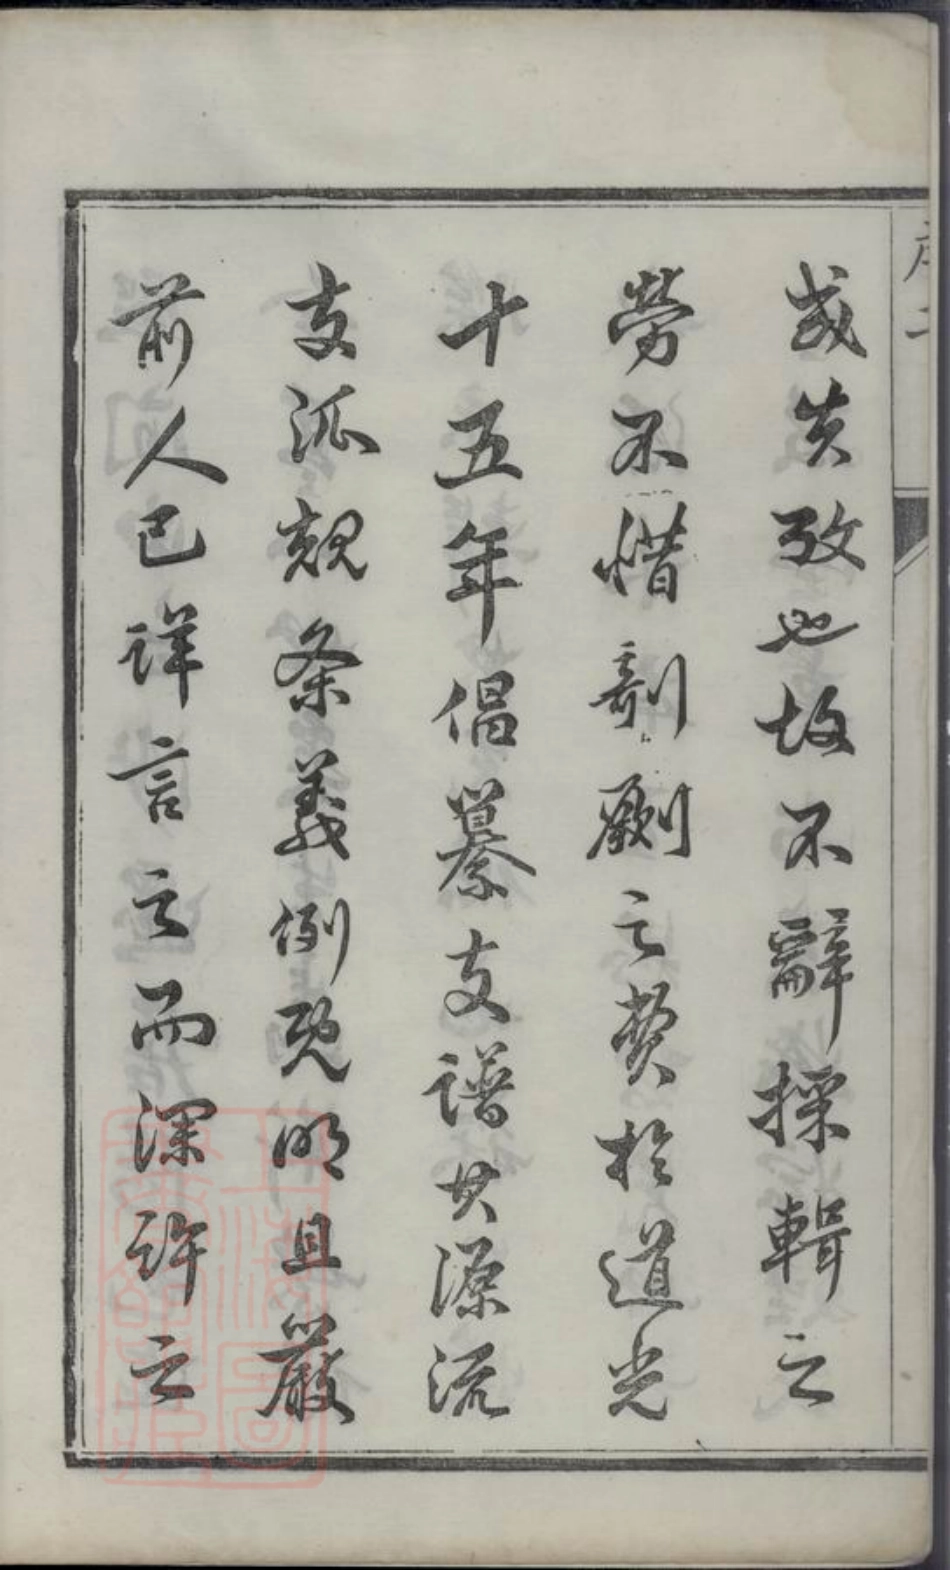 或失攷也故不辭採輯之
勞不惜剞劂之費於道光
十五年倡纂支譜其源流
支派規条義例既明且嚴
前人已詳言之而深許之
序二